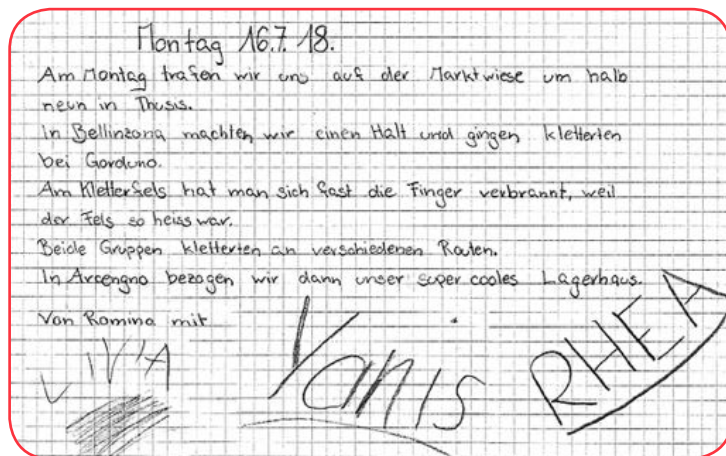 Montag 16.7.18.
Am Montag trafen wir uns auf der Marktwiese um halb
neun in Thusis.
In Bellinzona machten wir einen Halt und gingen kletterten
bei Gorduno.
Am Kletterfels hat man sich fast die Finger verbrannt, weil
der Fels so heiss war.
Beide Gruppen kletterten an verschiedenen Routen.
In Arcengno bezogen wir dann unser super cooles Lagerhaus.
Von Romina mit
LIVIA
Yanis
RHEA